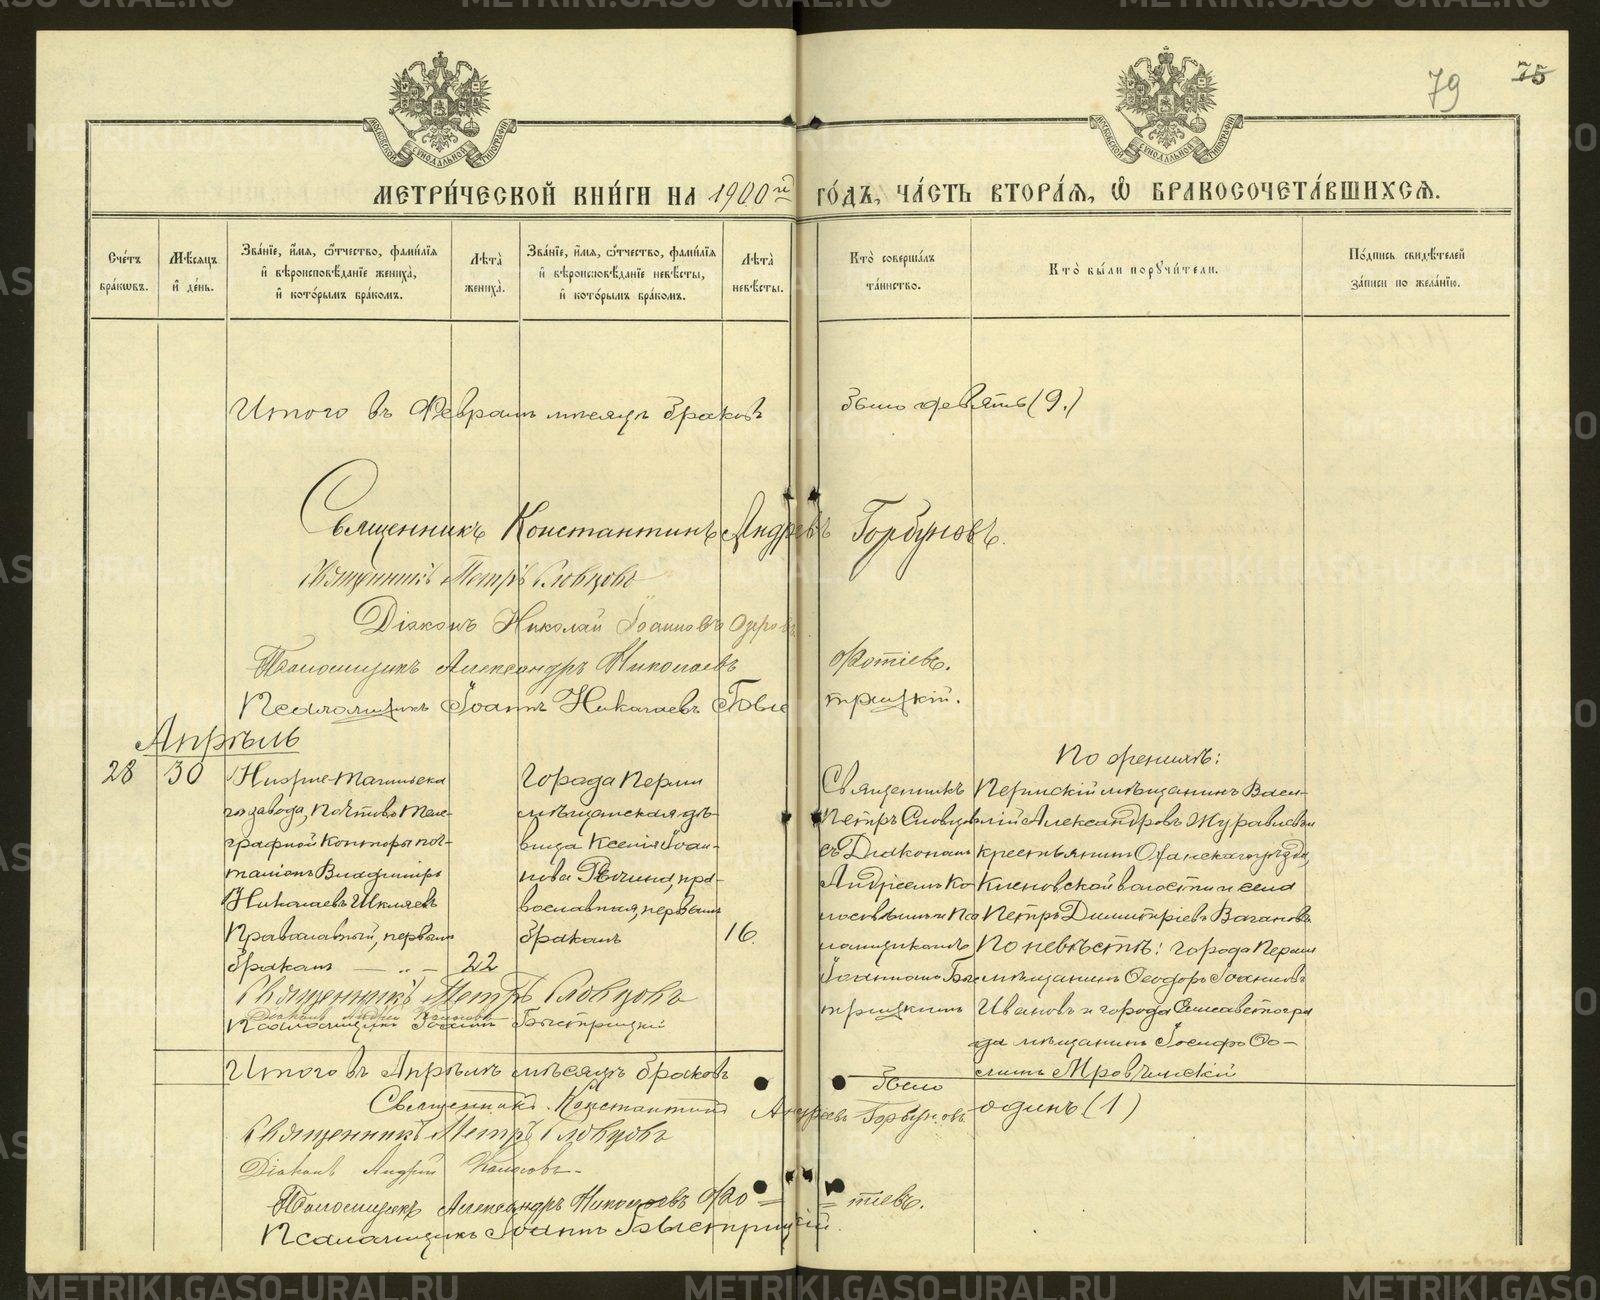 79
75
МОСКОВСКОЙ СѴНОДАЛЬНОЙ ТИПОГРАФІИ
МОСКОВСКОЙ СѴНОДАЛЬНОЙ ТИПОГРАФІИ
МЕТРИ́ЧЕСКОЙ КНИ́ГИ НА 1900й ГО́ДЪ, ЧА́СТЬ ВТОРА́Я, Ѽ БРАКОСОЧЕТА́ВШИХСЯ.
Сче́тъ бра́кѡвъ.
Мѣ́сяцъ и҆ де́нь.
Зва́нїе, и҆́мя, ѻ҆́тчество, фами́лїя и҆ вѣроисповѣ́данїе жениха̀, и҆ кото́рымъ бра́комъ.
Лѣта̀ жениха̀.
Зва́нїе, и҆́мя, ѻ҆́тчество, фами́лїя и҆ вѣроисповѣ́данїе невѣ́сты, и҆ кото́рымъ бра́комъ.
Лѣта̀ невѣ́сты.
Кто̀ соверша́лъ та́инство.
Кто̀ бы́ли порꙋчи́тели.
По́дпись свидѣ́телей за́писи по жела́нїю.
Итого въ Февралѣ мѣсяцѣ браковъ было девять (9.)
Священникъ Константинъ Андреевъ Горбуновъ.
Священникъ Петръ Словцовъ
Діаконъ Николай Іоанновъ
Псаломщикъ Александръ Николаевъ Фотіевъ.
Псаломщикъ Іоаннъ Николаевъ Быстрицкій.
Апрѣль
28
30
Нижне-Тагильска
го завода, Почтово-Теле-
графной Конторы поч-
таліонъ Владиміръ
Николаевъ Шкляевъ
Православный, первымъ
бракомъ
22
Города Перми
мѣщанская дѣ-
вица Ксенія Іоан-
нова, пра-
вославная, первымъ
бракомъ
16.
Священникъ
Петръ Словцовъ
съ Діакономъ
Андреемъ Ко
лосовымъ и Пса
ломщикомъ
Іоанномъ Бы
стрицкимъ
По женихѣ:
Пермскій мѣщанинъ Васи-
лій Александровъ Журавлевъ и
крестьянинъ Оханскаго уѣзда,
волости и села
Петръ Димитріевъ Вагановъ
По невѣстѣ: города Перми
мѣщанинъ Ѳеодоръ Іоанновъ
Ивановъ и города Елисаветогра
да мѣщанинъ Іосифъ Оси-
повъ Мровчинскій
Священникъ Петръ Словцовъ
Діаконъ Андрей Колосовъ
Псаломщикъ Іоаннъ Быстрицкій
Итого въ Апрѣлѣ мѣсяцѣ браковъ было одинъ (1)
Священникъ Константинъ Андреевъ Горбуновъ
Священникъ Петръ Словцовъ
Діаконъ Андрей Колосовъ
Псаломщикъ Александръ Николаевъ Фотіевъ.
Псаломщикъ Іоаннъ Быстрицкій.
METRIKI.GASO-URAL.RU